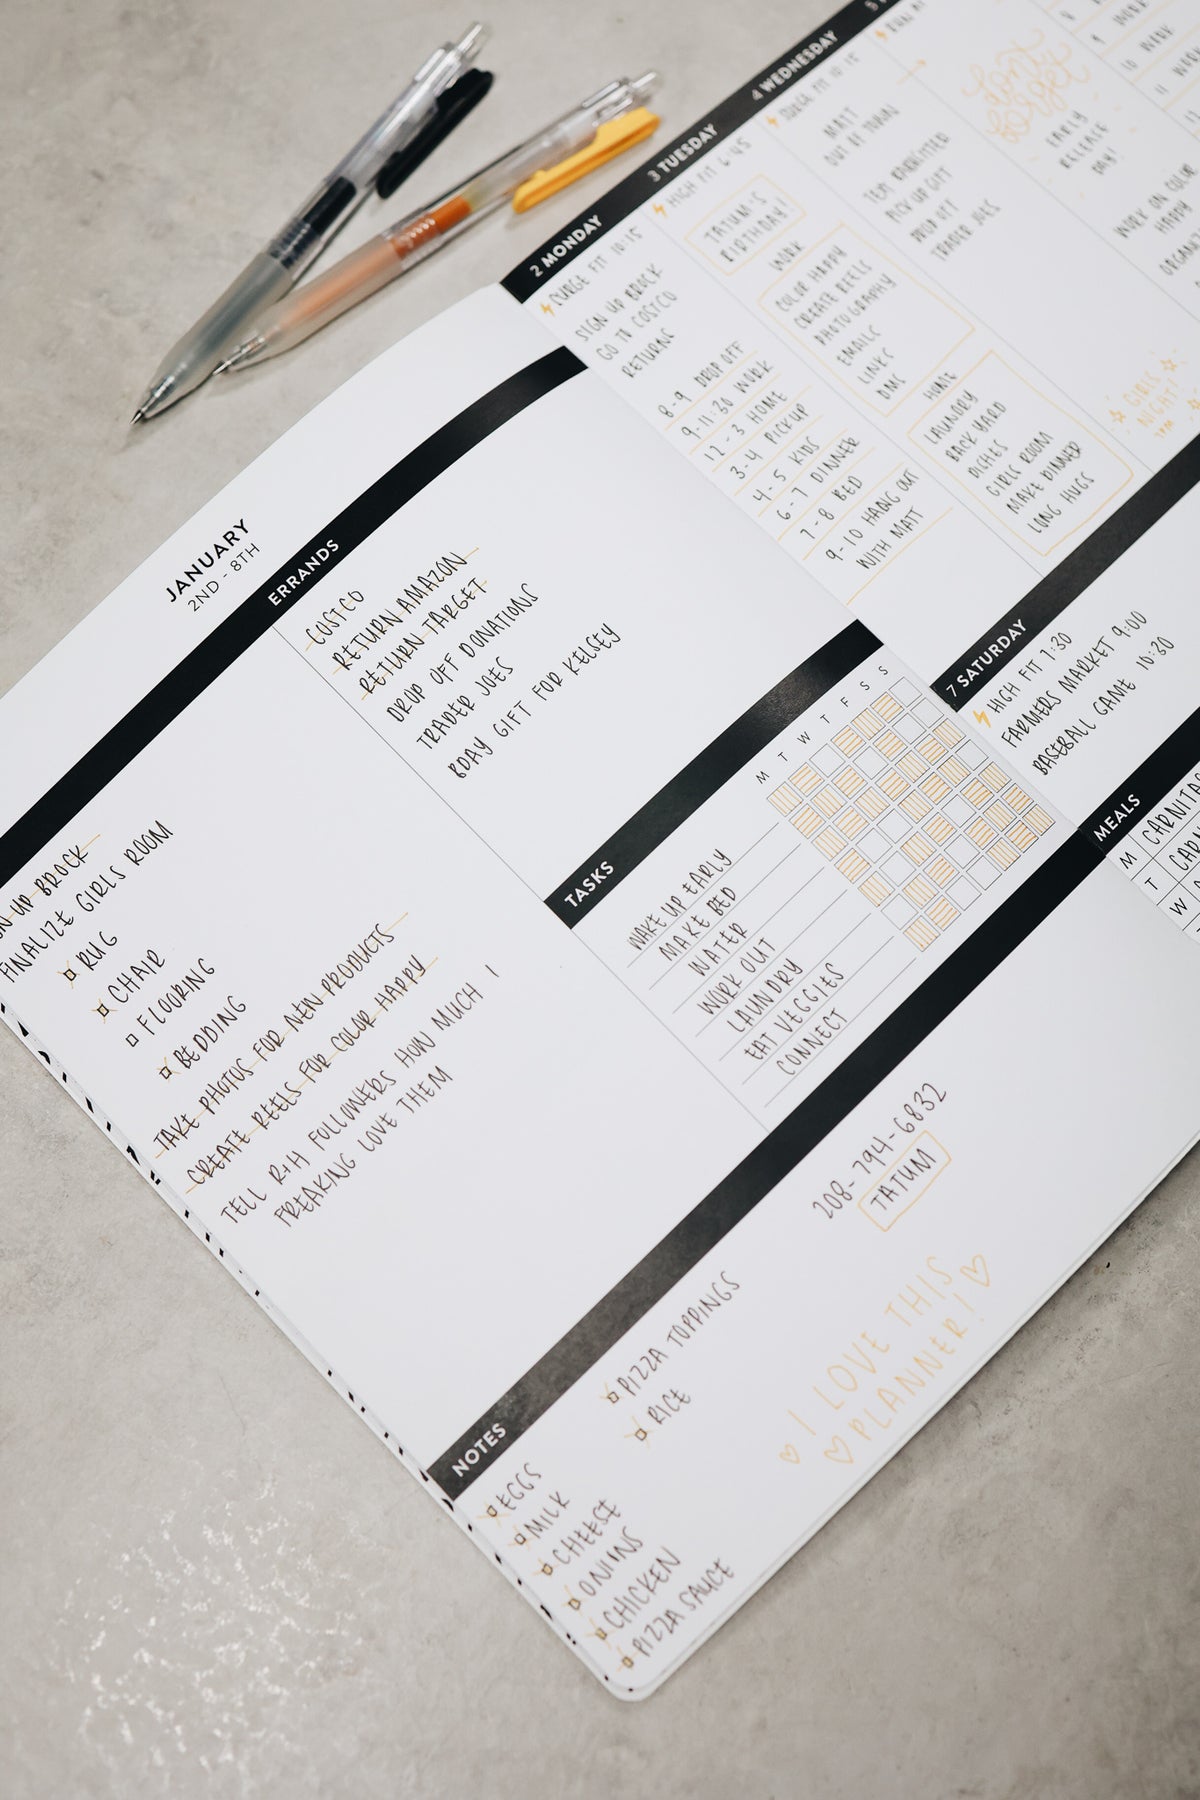 JANUARY
2ND - 8TH
UP BROCK
FINALIZE GIRLS ROOM
RUG
CHAIR
FLOORING
BEDDING
TAKE PHOTOS FOR NEW PRODUCTS
CREATE REELS FOR COLOR HAPPY
TELL R+H FOLLOWERS HOW MUCH I
FREAKING LOVE THEM
ERRANDS
COSTCO
RETURN AMAZON
RETURN TARGET
DROP OFF DONATIONS
TRADER JOES
BDAY GIFT FOR KELSEY
TASKS
M T W T F S S
WAKE UP EARLY
MAKE BED
WATER
WORK OUT
LAUNDRY
EAT VEGGIES
CONNECT
NOTES
EGGS
MILK
CHEESE
ONIONS
CHICKEN
PIZZA SAUCE
PIZZA TOPPINGS
RICE
208-794-6832
TATUM
I LOVE THIS
PLANNER!
2 MONDAY
SURGE FIT 10:15
SIGN UP BROCK
GO TO COSTCO
RETURNS
8-9 DROP OFF
9-11:30 WORK
12-3 HOME
3-4 PICKUP
4-5 KIDS
6-7 DINNER
7-8 BED
9-10 HANG OUT
WITH MATT
3 TUESDAY
HIGH FIT 6:45
TATUM'S
BIRTHDAY!
WORK
COLOR HAPPY
CREATE REELS
PHOTOGRAPHY
EMAILS
LINKS
DMS
HOME
LAUNDRY
BACK YARD
DISHES
GIRLS ROOM
MAKE DINNER
LONG HUGS
4 WEDNESDAY
SURGE FIT 10:15
MATT
OUT OF TOWN
TEXT
PICK UP GIFT
DROP OFF
TRADER JOES
GIRLS
NIGHT!
7PM
5
don't
forget
EARLY
RELEASE
DAY!
WORK ON COLOR
HAPPY
9 WORK
10 WORK
11 WORK
7 SATURDAY
HIGH FIT 7:30
FARMERS MARKET 9:00
BASEBALL GAME 10:30
MEALS
M CARNITAS
T
W